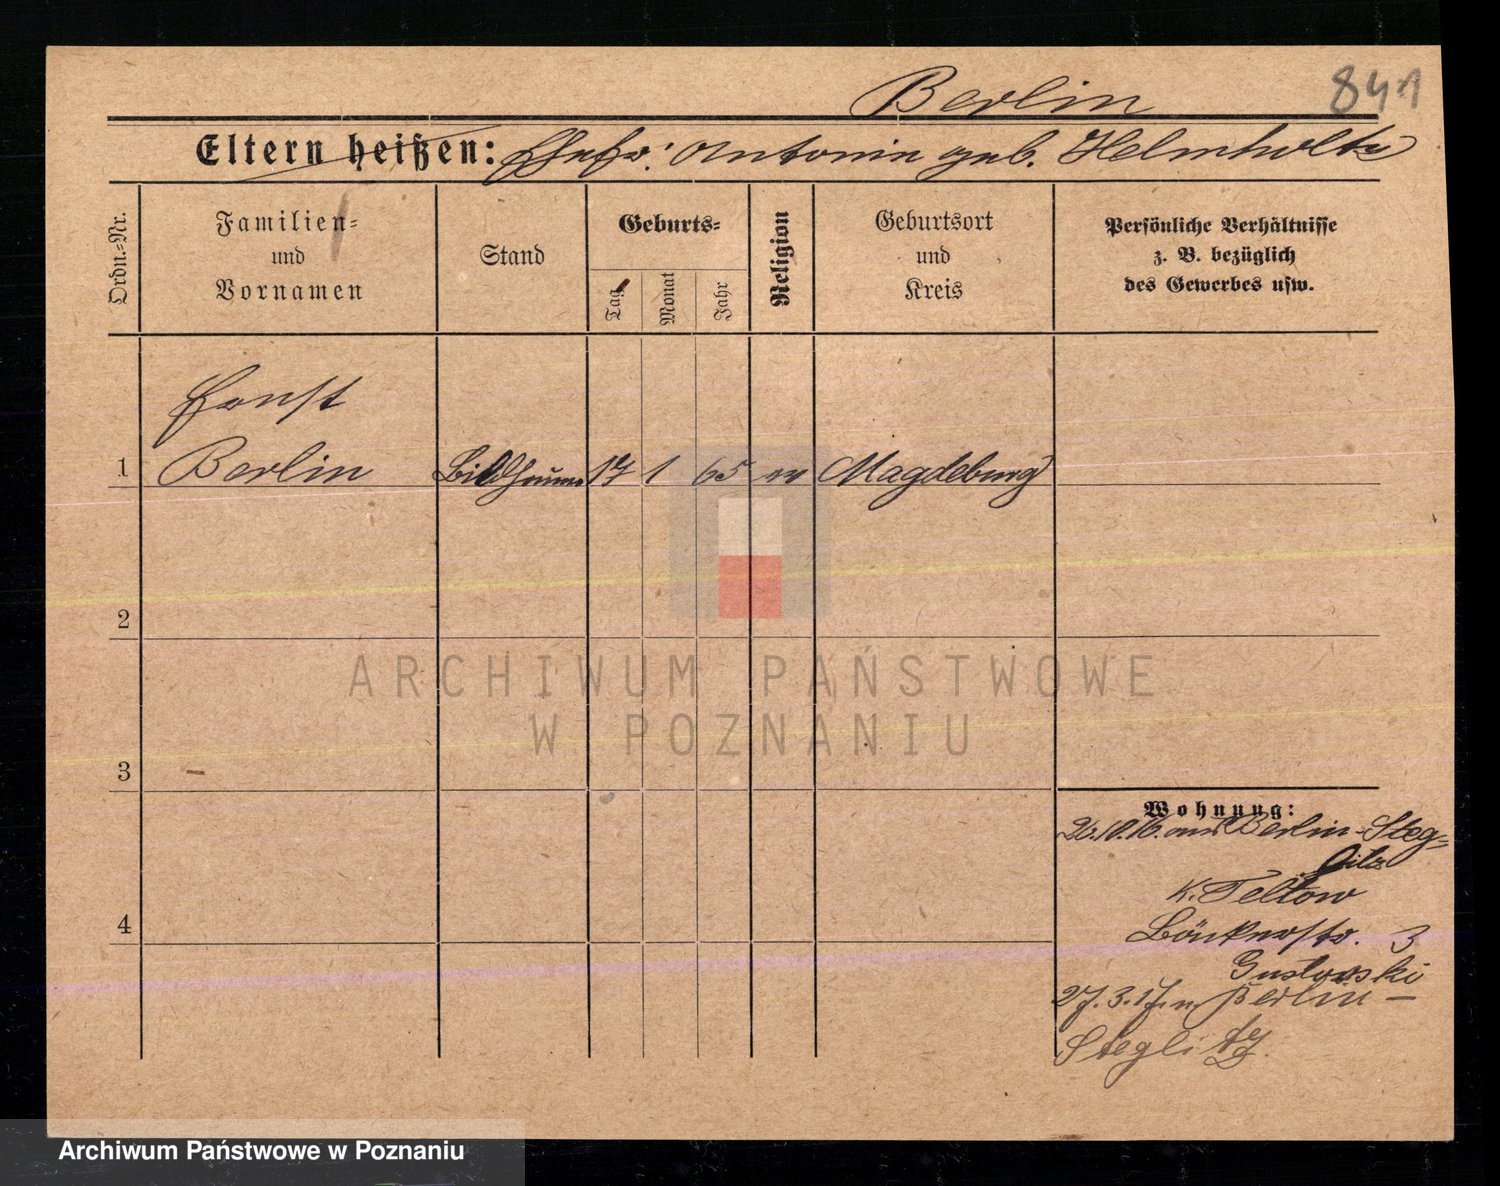 Berlin 841
Eltern heißen: Ehefr. Antonie geb. Helmholtz
Ordn.-Nr.
Familien-
und
Vornamen
Stand
Geburts-
Tag
Monat
Jahr
Religion
Geburtsort
und
Kreis
Persönliche Verhältnisse
z. B. bezüglich
des Gewerbes usw.
Ernst
1 Berlin Bildhauer 17 1 65 ev Magdeburg
2
3
4
Wohnung:
26.10.16. aus Berlin-Steg-
litz
K. Teltow
3
Gustowski
27.3.17 n. Berlin-
Steglitz.
ARCHIWUM PAŃSTWOWE
W POZNANIU
Archiwum Państwowe w Poznaniu